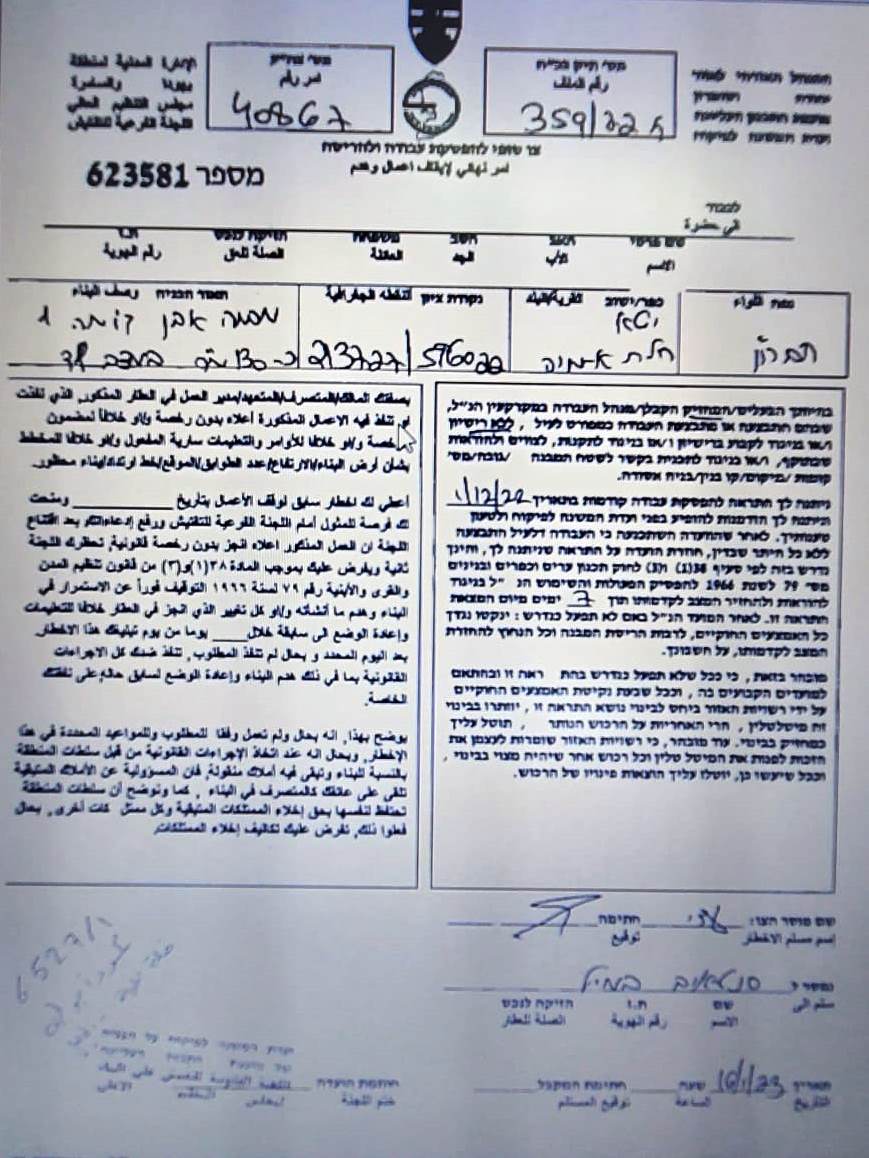 מס' תיק בב"ח
رقم الملف
359/22
מס' צו/ע"מ
امر رقم
40867
الإدارة المدنية لمنطقة
يهودا والسامرة
مجلس التنظيم الاعلى
اللجنة الفرعية للتفتيش
צו סופי להפסקת עבודה ולהריסה
امر نهائي لإيقاف اعمال وهدم
מספר 623581
לכבוד
الى حضرة
שם פרטי
האב
הסב
משפחה
ת.ז
الاسم
الأب
الجد
العائلة
الصلة للحق
رقم الهوية
נפת اللواء
כפר/ישוב القرية/البلد
נקודת ציון
תאור הבניה وصف البناء
חברון
יטא
213727/596022
מבנה אבן קומה 1
בתיותך הבעלים/המחזיק הקבלן/מנהל העבודה במקרקעין הנ"ל,
שבהם התבצעה או מתבצעת העבודה כמפורט לעיל, ללא רישיון
ו/או בניגוד לקבוע ברישיון ו/או בניגוד לתקנות, לצווים ולהוראות
שבתוקף, ו/או בניגוד לתכנית בקשר לשטח המבנה /גובה/מס'
קומות /מיקום/קו בנין/בניה אסורה.
ניתנה לך התראה להפסקת עבודה קודמת בתאריך 1/12/22
וניתנה לך הזדמנות להופיע בפני ועדת המשנה לפיקוח ולטעון
טענותיך. לאחר שהוועדה השתכנעה כי העבודה דלעיל התבצעה
ללא כל היתר שבדין, חוזרת הועדה על התראה שניתנה לך, והינך
נדרש בזה לפי סעיף 38(1) ו(3) לחוק תכנון ערים וכפרים ובניינים
מס' 79 לשנת 1966 להפסיק הפעולות והשימוש הנ"ל בניגוד
להוראות ולהחזיר המצב לקדמותו תוך 7 ימים מיום המצאת
התראה זו. לאחר המועד הנ"ל באם לא תפעל כנדרש: ינקטו נגדך
כל האמצעים החוקיים, לרבות הריסת המבנה וכל הנחוץ להחזרת
המצב לקדמותו, על חשבונך.
מובהר בזאת, כי ככל שלא תפעל כנדרש בהת ראה זו ובהתאם
למועדים הקבועים בה, וככל שבעת נקיטת האמצעים החוקיים
על ידי רשויות האזור ביחס לבינוי נושא התראה זו, יוותרו בבינוי
זה מיטלטלין, הרי האחריות על הרכוש הנותר, תוטל עליך
כמחזיק בבינוי. עוד מובהר, כי רשויות האזור שומרות לעצמן את
הזכות לפנות את המיטלטלין וכל רכוש אחר שיהיה מצוי בבינוי,
וככל שיעשו כן, יוטלו עליך הוצאות פינויו של הרכוש.
بصفتك المالك/المتصرف/المتعهد/مدير العمل في العقار المذكور, الذي نفذت
او تنفذ فيه الاعمال المذكورة أعلاه بدون رخصة و/او خلافاً لمضمون
رخصة و/او خلافا للأوامر والتعليمات سارية المفعول و/او خلافا للمخطط
بشأن أرض البناء/الارتفاع/عدد الطوابق/الموقع/خط ارتداد/بناء محظور.
أعطي لك اخطار سابق لوقف الأعمال بتاريخ ______ ومنحت
لك فرصة للمثول أمام اللجنة الفرعية للتفتيش ورفع إدعاءاتكم بعد اقتناع
اللجنة ان العمل المذكور اعلاه انجز بدون رخصة قانونية, تحظرك اللجنة
ثانية ويفرض عليك بموجب المادة ٣٨(١)و(٣) من قانون تنظيم المدن
والقرى والأبنية رقم ٧٩ لسنة ١٩٦٦ التوقيف فوراً عن الاستمرار في
البناء وهدم ما أنشأته و/او كل تغيير الذي انجز في العقار خلافا للتعليمات
وإعادة الوضع الى سابقة خلال____ يوما من يوم تبليغك هذا الاخطار.
بعد اليوم المحدد و بحال لم تنفذ المطلوب, تنفذ ضدك كل الاجراءات
القانونية بما في ذلك هدم البناء وإعادة الوضع لسابق حاله, على نفقتك
الخاصة.
يوضح بهذا, انه بحال ولم تعمل وفقا للمطلوب وللمواعيد المحددة في هذا
الإخطار, وبحال انه عند اتخاذ الإجراءات القانونية من قبل سلطات المنطقة
بالنسبة للبناء وتبقى فيه أملاك منقولة, فان المسؤولية عن الأملاك المتبقية
تلقى على عاتقك كالمتصرف في البناء, كما ونوضح أن سلطات المنطقة
تحتفظ لنفسها بحق إخلاء الممتلكات المتبقية وكل ممتلكات أخرى, بحال
فعلوا ذلك, تفرض عليك تكاليف إخلاء الممتلكات.
שם מוסר הצו:
חתימה
اسم مسلم الاخطار
توقيع
נמסר ל
سلم الى
שם
ת.ז
הזיקה לנכס
الاسم
رقم الهوية
الصلة للعقار
תאריך 16/1/23 שעה
חתימת המקבל
חותמת הועדה
التاريخ
الساعة
توقيع المستلم
ختم اللجنة